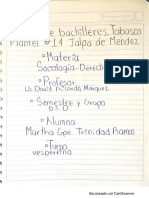 de bachilleres Tabasco
Plantel #14 Jalpa de Mendez
• Materia
Sociología-Derecho
• Profesor
Lic. David Ricardo Marquez
• Semestre y Grupo
• Alumna
Martha Gpe. Trinidad Ramos
• Turno
vespertino
Escaneado con CamScanner